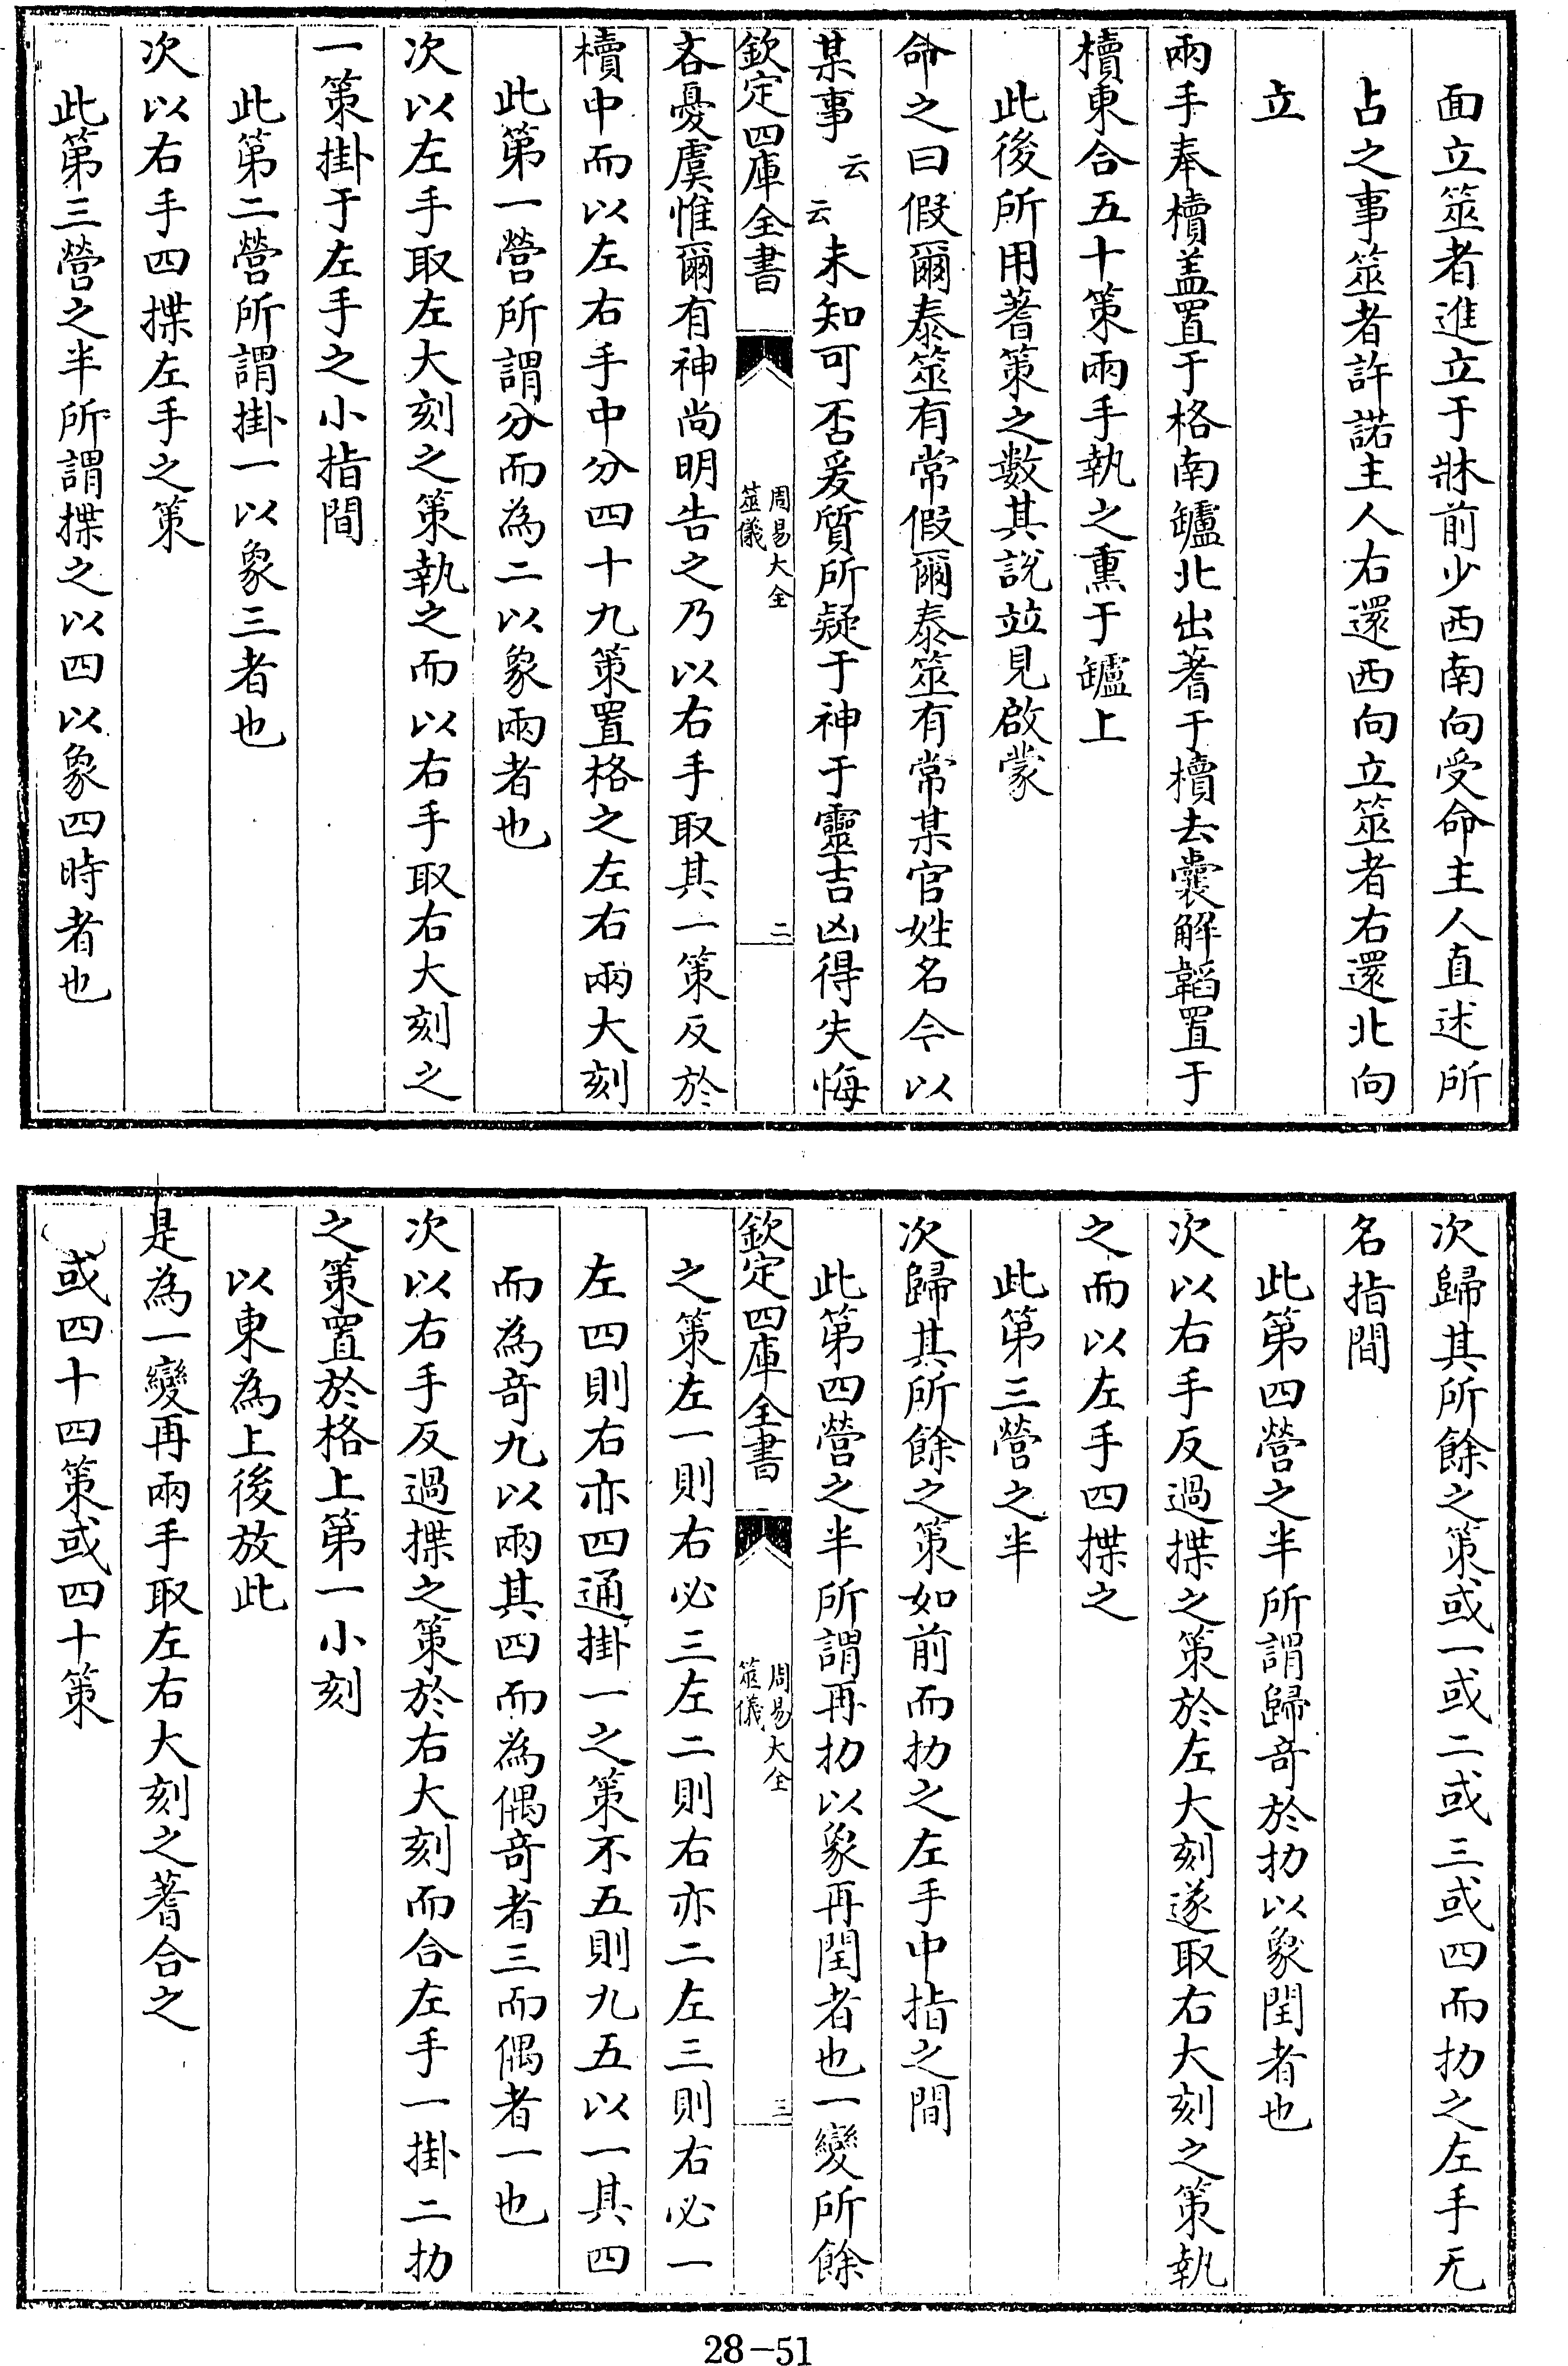 面立筮者進立于牀前少西南向受命主人直述所
占之事筮者許諾主人右還西向立筮者右還北向
立
兩手奉櫝盖置于格南罏北出蓍于櫝去囊解韜置于
櫝東合五十策兩手執之熏于罏上
此後所用蓍策之數其說竝見啟蒙
命之曰假爾泰筮有常假爾泰筮有常某官姓名今以
某事云云未知可否爰質所疑于神于靈吉凶得失悔
欽定四庫全書
周易大全
筮儀
二
吝憂虞惟爾有神尚明告之乃以右手取其一策反於
櫝中而以左右手中分四十九策置格之左右兩大刻
此第一營所謂分而為二以象兩者也
次以左手取左大刻之策執之而以右手取右大刻之
一策掛于左手之小指間
此第二營所謂掛一以象三者也
次以右手四揲左手之策
此第三營之半所謂揲之以四以象四時者也
次歸其所餘之策或一或二或三或四而扐之左手无
名指間
此第四營之半所謂歸竒於扐以象閏者也
次以右手反過揲之策於左大刻遂取右大刻之策執
之而以左手四揲之
此第三營之半
次歸其所餘之策如前而扐之左手中指之間
此第四營之半所謂再扐以象再閏者也一變所餘
欽定四庫全書
周易大全
筮儀
三
之策左一則右必三左二則右亦二左三則右必一
左四則右亦四通掛一之策不五則九五以一其四
而為竒九以兩其四而為偶竒者三而偶者一也
次以右手反過揲之策於右大刻而合左手一掛二扐
之策置於格上第一小刻
以東為上後放此
是為一變再兩手取左右大刻之蓍合之
或四十四策或四十策
28-51